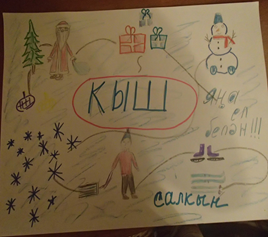 КЫШ
Яңа
ел
белән!!!
салкын